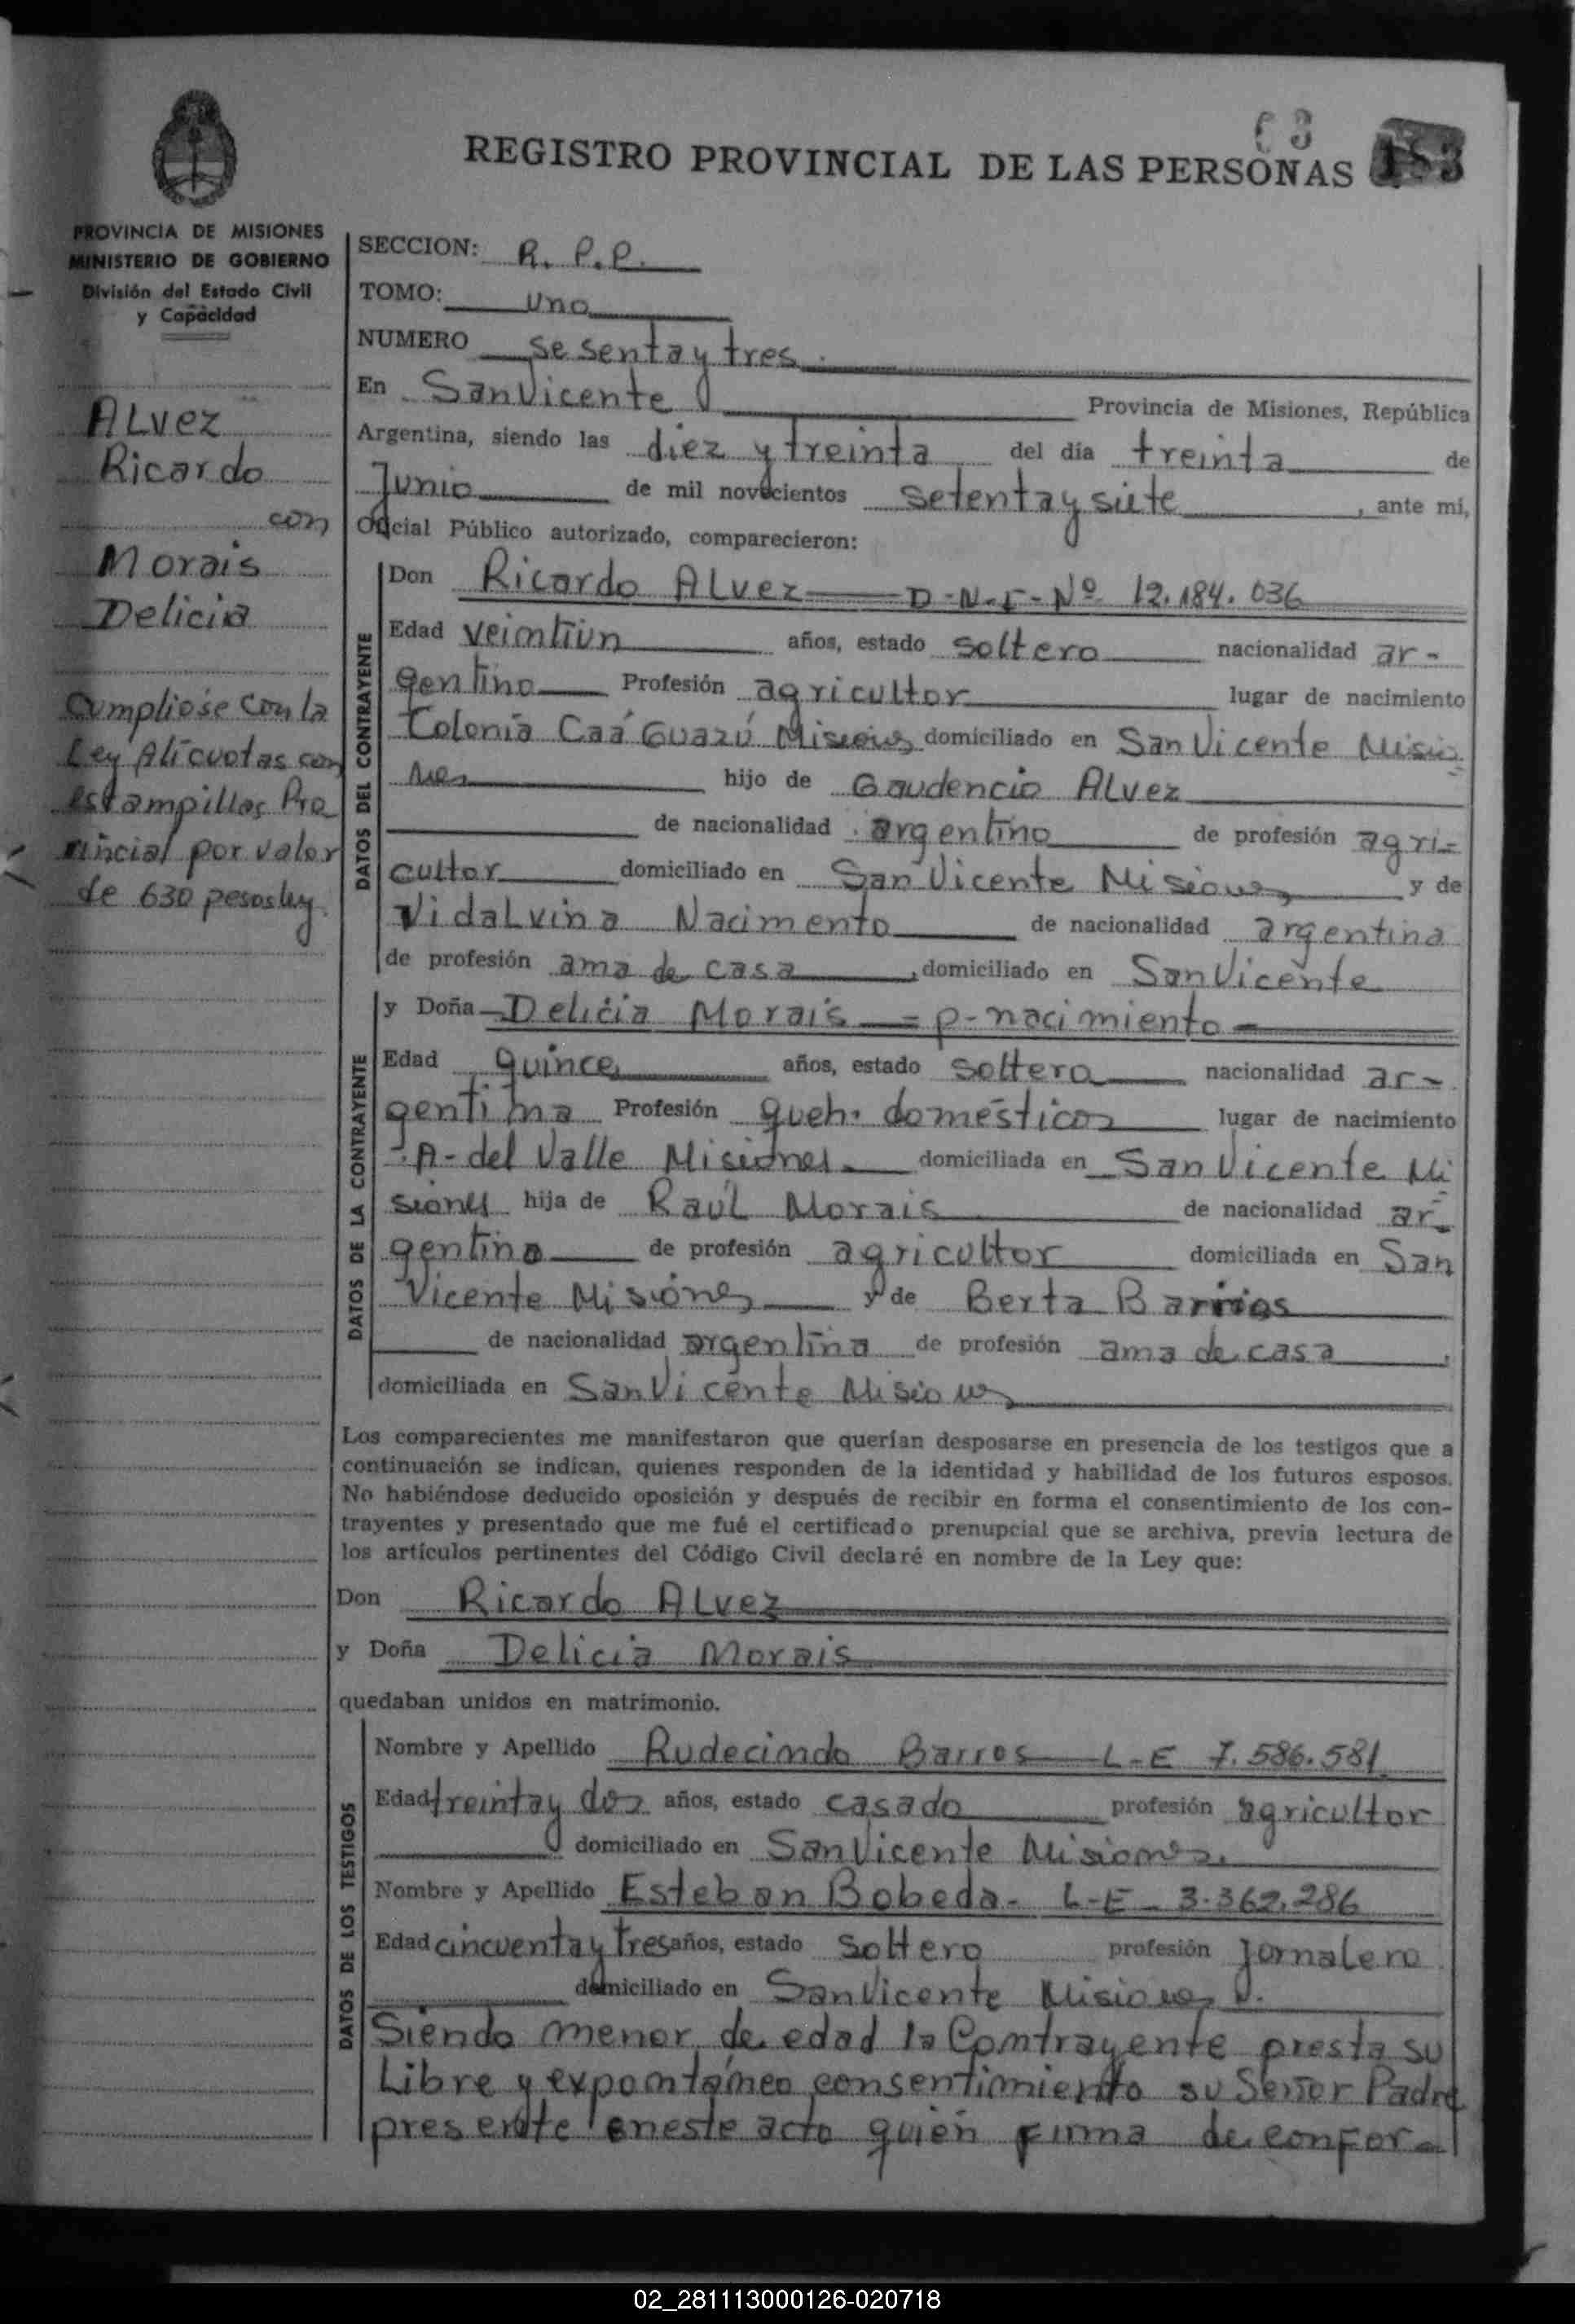 REGISTRO PROVINCIAL DE LAS PERSONAS
63
153
PROVINCIA DE MISIONES
MINISTERIO DE GOBIERNO
División del Estado Civil
y Capacidad
Alvez
Ricardo
con
Morais
Delicia
Cumpliose con la
Ley Alicuotas con
estampillas Pro
vincial por valor
de 630 pesos ley
SECCION: R. P. P.
TOMO: uno
NUMERO sesenta y tres.
En San Vicente Provincia de Misiones, República
Argentina, siendo las diez y treinta del día treinta de
Junio de mil novecientos setenta y siete, ante mí,
Oficial Público autorizado, comparecieron:
DATOS DEL CONTRAYENTE
Don Ricardo Alvez — D-N-I- Nº 12.184.036
Edad veintiun años, estado soltero nacionalidad ar-
gentino Profesión agricultor lugar de nacimiento
Colonia Caá Guazú Misiones domiciliado en San Vicente Misio
nes hijo de Gaudencio Alvez
de nacionalidad argentino de profesión agri-
cultor domiciliado en San Vicente Misiones y de
Vidalvina Nacimento de nacionalidad argentina
de profesión ama de casa, domiciliado en San Vicente
DATOS DE LA CONTRAYENTE
y Doña Delicia Morais = p-nacimiento -
Edad quince años, estado soltera nacionalidad ar-
gentina Profesión queh. domésticos lugar de nacimiento
A- del Valle Misiones domiciliada en San Vicente Mi
siones hija de Raúl Morais de nacionalidad ar-
gentino de profesión agricultor domiciliada en San
Vicente Misiones y de Berta Barrios
de nacionalidad argentina de profesión ama de casa,
domiciliada en San Vicente Misiones
Los comparecientes me manifestaron que querían desposarse en presencia de los testigos que a
continuación se indican, quienes responden de la identidad y habilidad de los futuros esposos.
No habiéndose deducido oposición y después de recibir en forma el consentimiento de los con-
trayentes y presentado que me fué el certificado prenupcial que se archiva, previa lectura de
los artículos pertinentes del Código Civil declaré en nombre de la Ley que:
Don Ricardo Alvez
y Doña Delicia Morais
quedaban unidos en matrimonio.
DATOS DE LOS TESTIGOS
Nombre y Apellido Rudecindo Barros — L-E 7.586.581
Edad treinta y dos años, estado casado profesión agricultor
domiciliado en San Vicente Misiones.
Nombre y Apellido Esteban Bobeda- L-E- 3.362.286
Edad cincuenta y tres años, estado soltero profesión Jornalero
domiciliado en San Vicente Misiones.
Siendo menor de edad la Contrayente presta su
Libre y expontáneo consentimiento su Señor Padre
presente en este acto quién firma de confor-
02_281113000126-020718